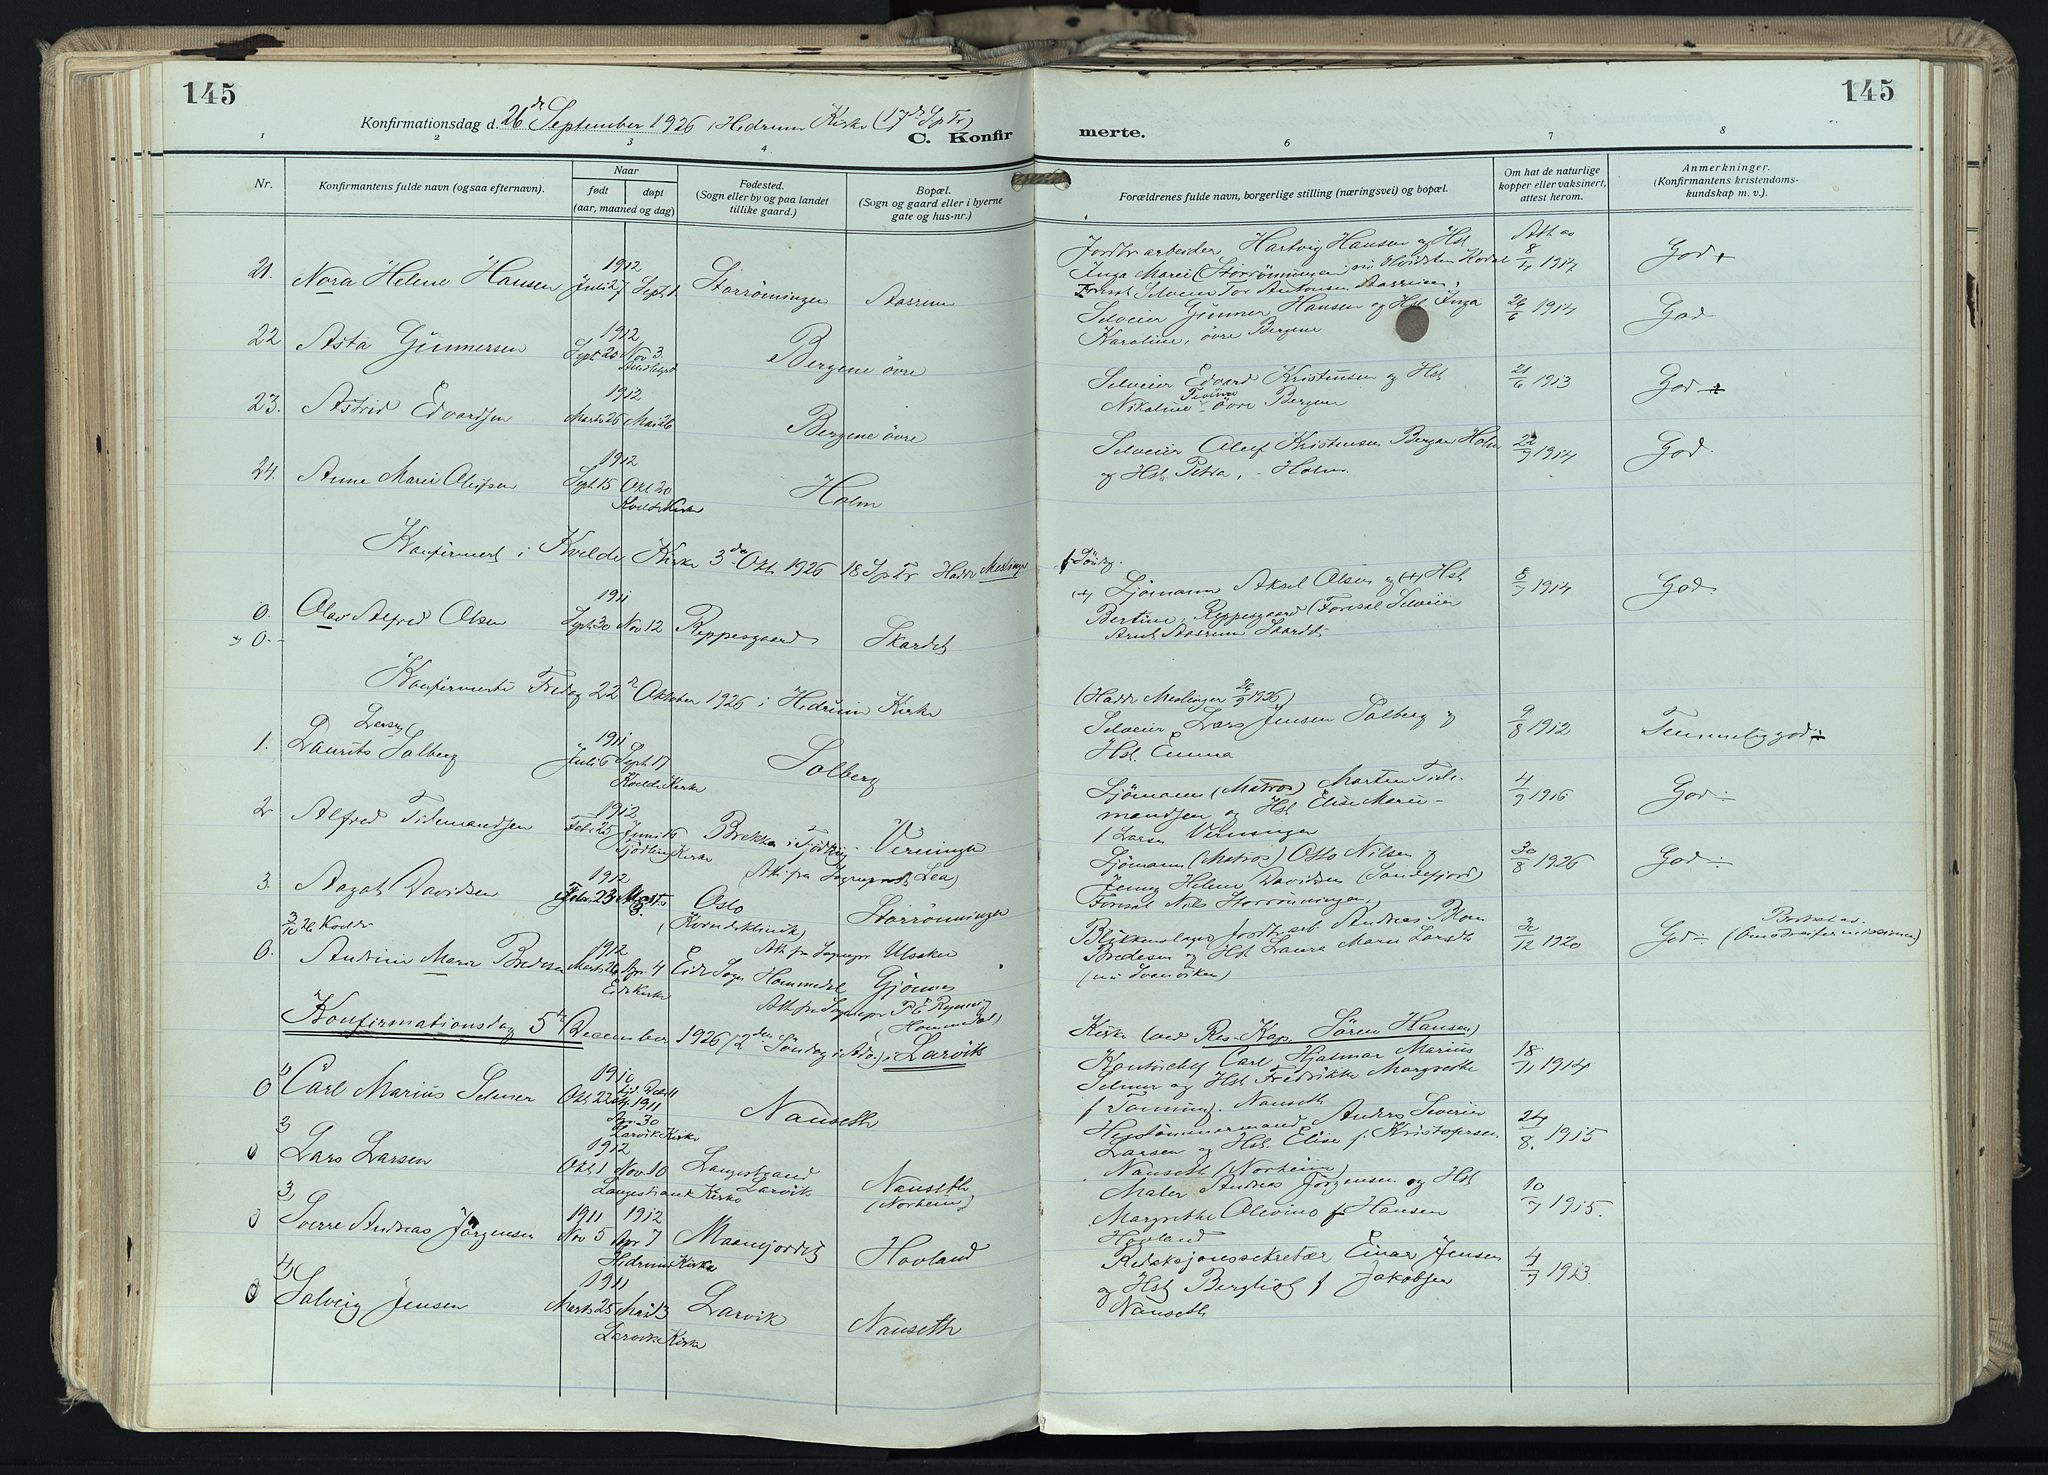 145
145
Konfirmationsdag d. 26 de September 1926 i Hedrum Kirke (17 de S p Tr)
C. Konfir
merte.
1 2 3 4 5 6 7 8
Nr.
Konfirmantens fulde navn (ogsaa efternavn).
Naar
født
døpt
(aar, maaned og dag)
Fødested.
(Sogn eller by og paa landet
tillike gaard.)
Bopæl.
(Sogn og gaard eller i byerne
gate og hus-nr.)
Forældrenes fulde navn, borgerlige stilling (næringsvei) og bopæl.
Om hat de naturlige
kopper eller vaksinert,
attest herom.
Anmerkninger.
(Konfirmantens kristendoms-
kundskap m. v.).
21. Nora Helene Hansen 1912 Juli 27 Sept 1 Storrönningen Aasrum
Jordbr arbeider Hartvig Hansen og Hst
Inga Marie (Storrönningen) nu Hvidsten Kodal
Foresat Selveier Tor Antonsen Aasrum.
Att av 8/4 1917 God +
22 Asta Gunnersen 1912 Sept 20 Nov 3. Bergene övre
Selveier Gunner Hansen og Hst Inga
Karoline, övre Bergene
26/6 1914 God
23. Astrid Edvardsen 1912 Marts 26 Mai 26 Bergene övre
Selveier Edvard Kristensen og Hst
Nikoline övre Bergene
21/6 1913 God
24. Anne Marie Olufsen 1912 Sept 15 Okt 20 Kvelde Kirke Holm
Selveier Oluf Kristensen Bergan Holm
og Hst Petra, - Holm.
22/7 1914 God.
Konfirmert i Kvelde Kirke 3 de Okt. 1926 18 S p Tr Hadde Meslinge
0. Olav Alfred Olsen 1911 Sept 30 Nov 12 Reppesgaard Skardet
0.-
(+) Sjömann Aksel Olsen og (+) Hst
Bertine, Reppesgaard (Foresat Selveier
Arnt Aasrum Skardet
8/7 1914 God
Konfirmerte Fredag 22 de Oktober 1926 i Hedrum Kirke
(Hadde Meslinger 26/9 1926)
1. Laurits Larsen Solberg 1911 Juli 6 Sept 17 Kvelde Kirke Solberg
Selveier Lars Jensen Solberg og
Hst. Emma
9/8 1912 Temmelig god
2 Alfred Tidemandsen 1912 Feb 25 Juni 16 Tjödling Kirke Brekke i Tjödling Verningen
(Att fra Sogneprest Lea)
Sjömann (Matros) Marten Tide-
mandsen og Hst Elise Marie
f Larsen Verningen
4/9 1916 God
3. Aagot Davidsen 1912 Febr 23 Marts 3. Oslo (Kvindeklinik) Storrönningen
Sjömann (Matros) Otto Nilsen og
Jenny Helene Davidsen (Sandefjord)
Foresat Nils Storrönningen
30/8 1926 God
3/10 26 Kodal
0. Andrine Marie Bredesen 1912 Marts 26 Apr. 4 Eids Kirke Eide Sogn Hommedal Gjönnes
Att fra Sogneprest P E Rynning
(Hommedal)
Blikkenslager Jordbr arb Andreas Blom
Bredesen og Hst Laura Marie Larsdt
(nu Svanviken)
3/12 1920 God (Omstreifermissionen)
Konfirmationsdag 5 te December 1926 (2 den Söndag i Adv.) i Larvik
Kirke (ved Res. Kap. Sören Hansen)
1) 0 Carl Marius Selmer 1910 Okt 22 1911 Apr 30 Larvik Kirke Nanseth
Kontorchef Carl Hjalmar Marius
Selmer og Hst Fredrikke Margrethe
f Tönning. Nanseth
18/7 1914
2) 0 Lars Larsen 1912 Okt. 1 Nov. 10 Langestrand Larvik Nanseth
Langestrand Kirke (Norheim)
Hustömmermand Anders Severin
Larsen og Hst. Elise f. Kristofersen
Nanseth (Norheim)
24/8. 1915
3) 0 Sverre Andreas Jørgensen 1911 Nov 5 1912 Apr 7 Hedrum Kirke Maanejordet Hovland
Maler Andreas Jørgensen og Hst
Margrethe Olivine f Hansen
Hovland
10/7 1915.
4) 0 Solveig Jensen 1911 Marts 25 Mai 13 Larvik Kirke Larvik Nanseth
Redaksjonssekretær Einar Jensen
og Hst Bergliot f Jakobsen
Nanseth
4/7 1913